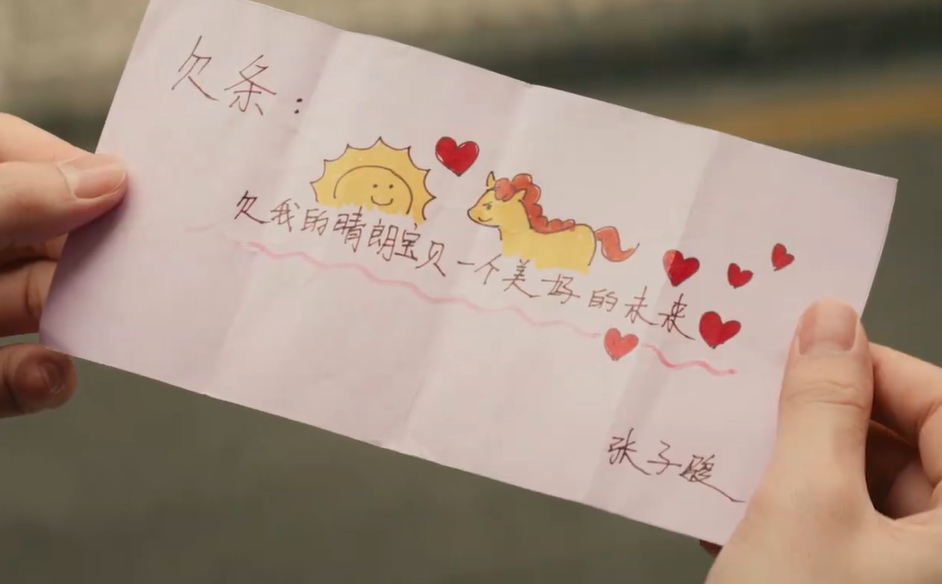 欠条：
欠我的晴朗宝贝一个美好的未来
张子骏